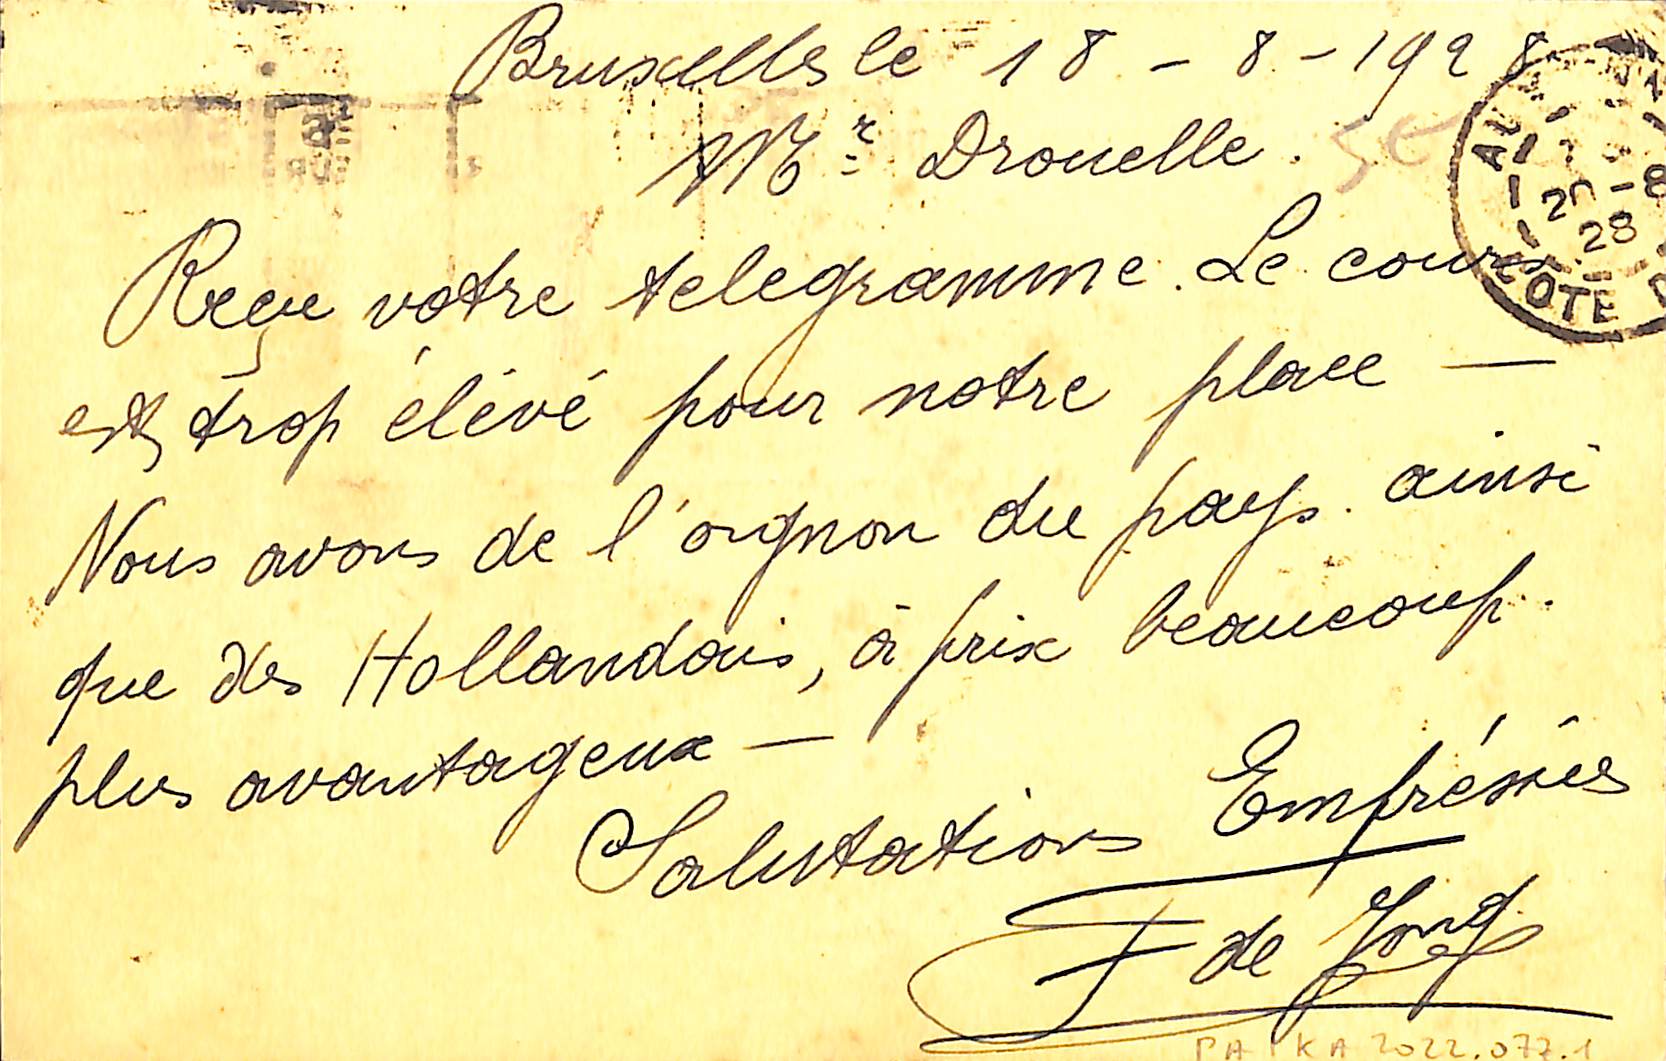 Bruxelles le 18 - 8 - 1928
Mr Drouelle.
Reçu votre telegramme. Le cours
est trop élévé pour notre place —
Nous avons de l'oignon du pays. ainsi
que des Hollandais, à prix beaucoup.
plus avantageux —
Salutations Empréssées
F de Jong
AU
20-8
28
COTE D
PATKA 2022.077.1